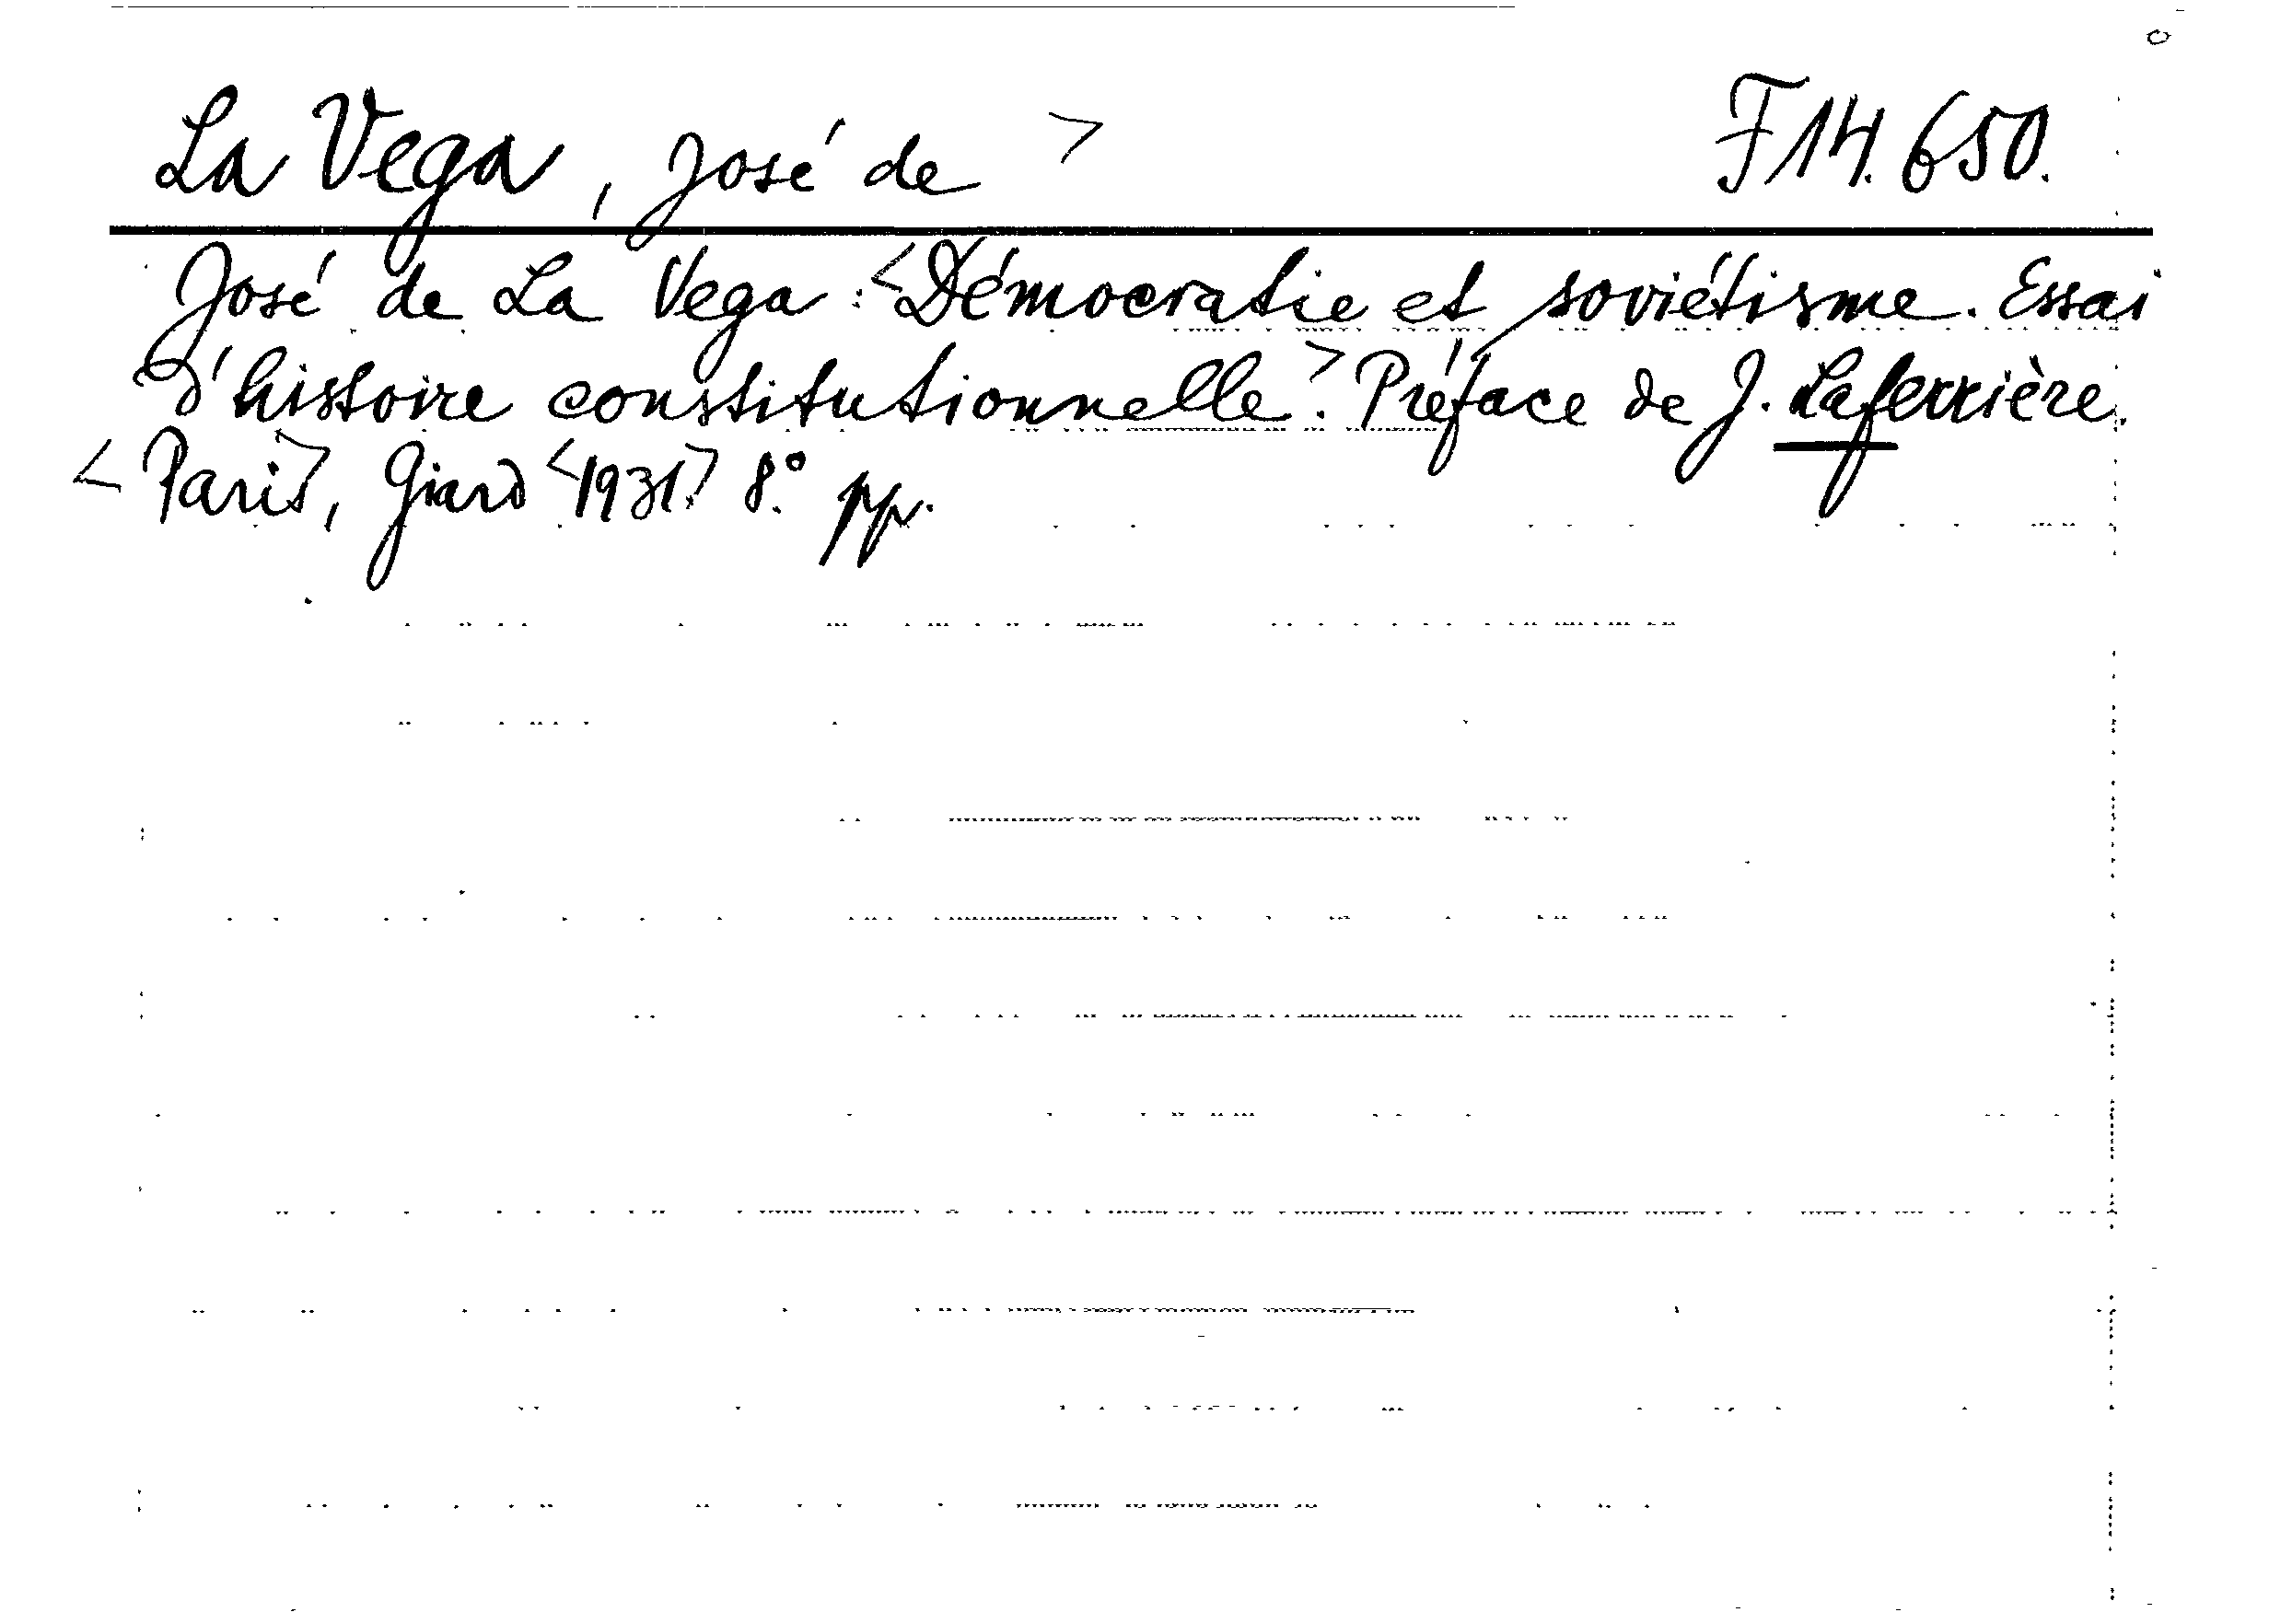 La Vega, José de > F 14.650.
José de La Vega: <Démocratie et soviétisme. Essai
d'histoire constitutionnelle.> Préface de J. Laferrière.
<Paris>, Giard <1931> 8.° pp.